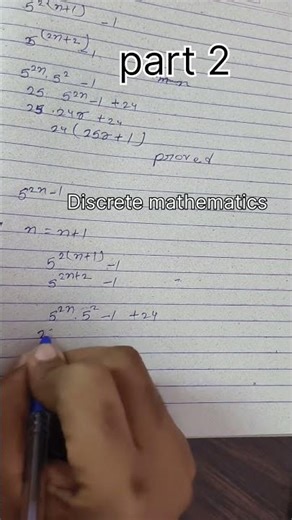 5^{2(n+1)} -1
5^{(2n+2)} -1
part 2
5^{2n}.5^2 -1
25. 5^{2n}-1 +24
25.24r +24
24(25r+1)
proved
5^{2n}-1
Discrete mathematics
n = n+1
5^{2(n+1)} -1
5^{2n+2} -1
5^{2n}.5^2 -1 +24